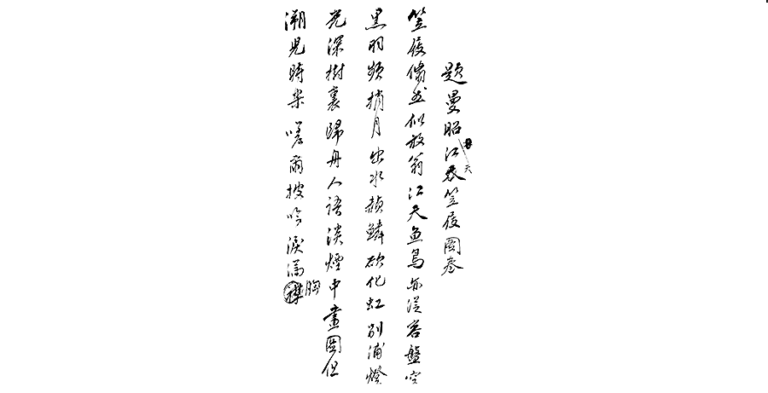 題曼昭江天笠屐圖卷
笠屐翛然似放翁江天魚鳥亦從容盤空
黑羽頻捎月出水赬鱗欲化虹別浦燈
光深樹裏歸舟人語淡煙中畫圖但
溯兒時樂嗟爾披吟淚滿襟胸